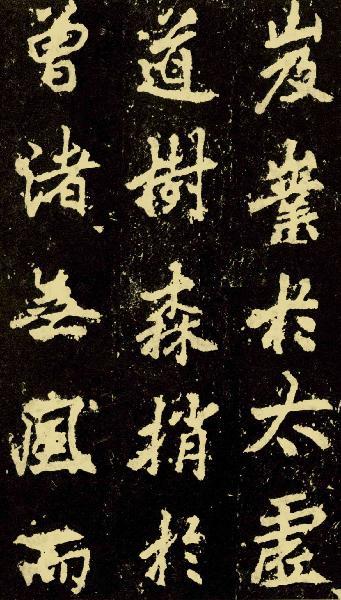 岌嶪於太虚
道樹森梢於
曾渚無風而